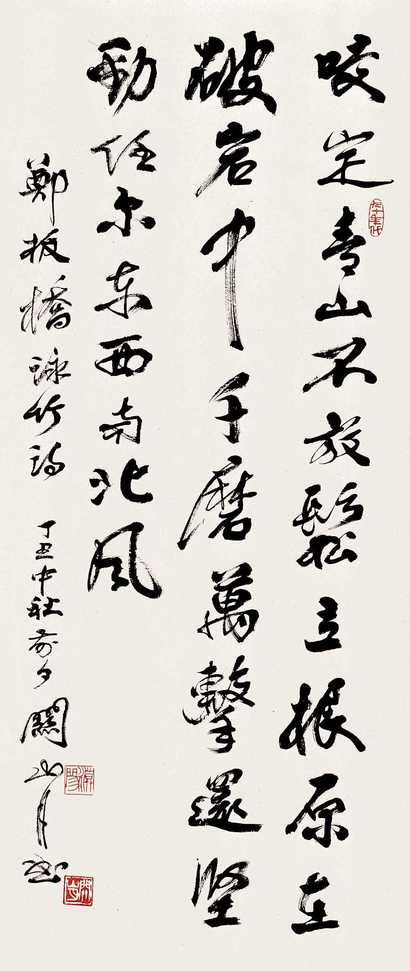 咬定青山不放鬆立根原在
破岩中千磨萬擊還坚
勁任尔东西南北风
鄭板橋詠竹詩 丁丑中秋前夕 關山月書